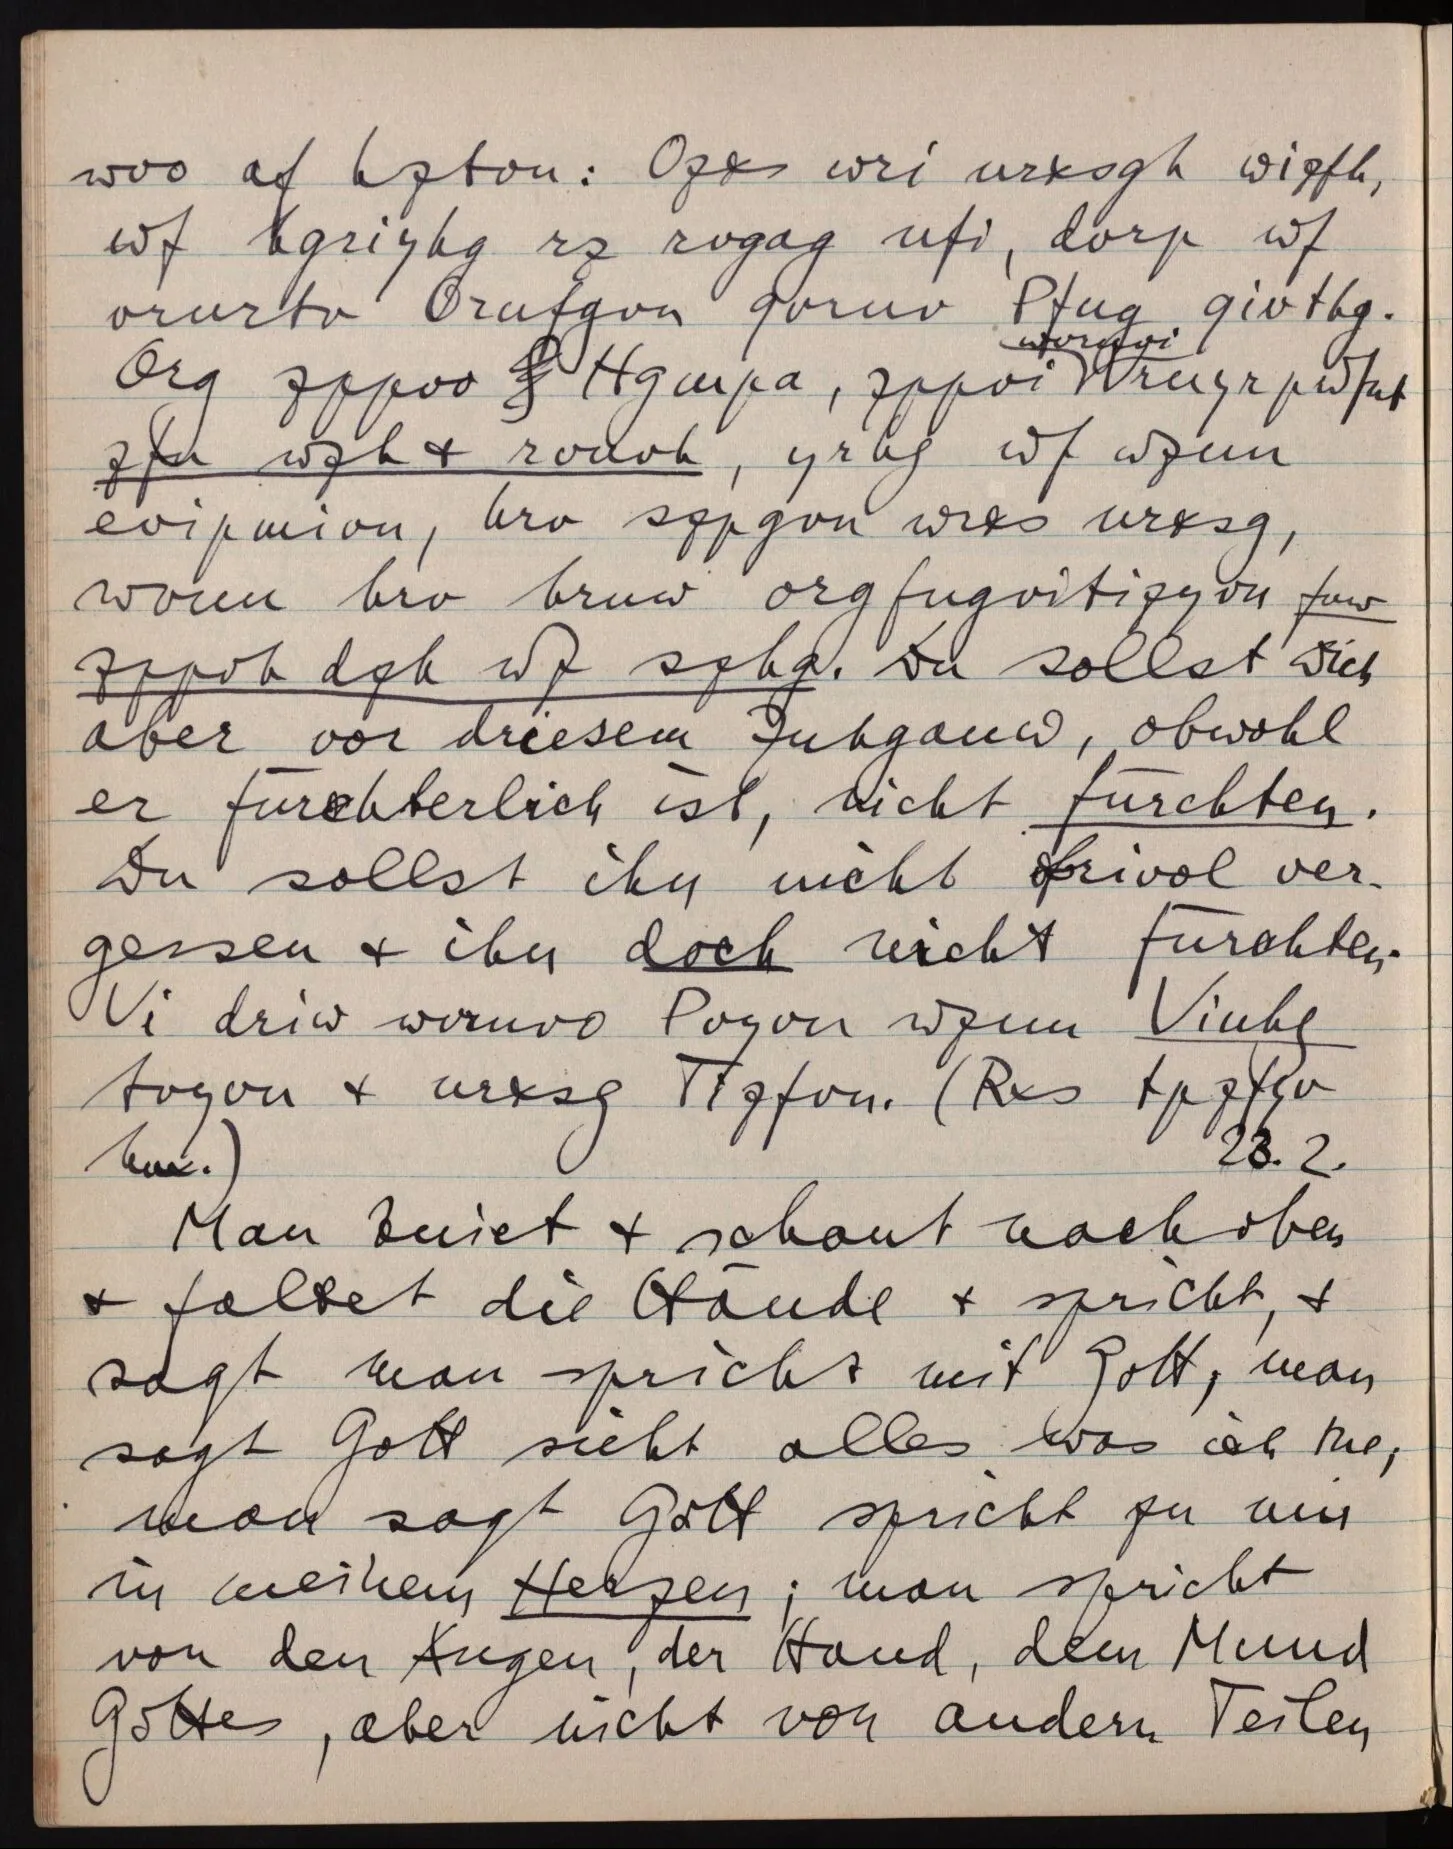 wvo af hztvn: Ozxs wri nrxsgh wizfh,
wf hgriyhg rz rvgag nfi, dvrp wf
vrnrtv Ornfgvn qvrnv Pfug qivthg.
wvrnvi
Org zppvo Hgmpa, zppvi Vrnyrpwfnt
zfu wzh & rvnvh, yrhg wf wznn
evipmivn, hrv szpgvn wrxs nrxsg,
wvnn hrv hrnw org fngvitizyvn fnw
zppvh dzh wf szhg. Du sollst Dich
aber vor diesem Afhgznw, obwohl
er fürchterlich ist, nicht fürchten.
Du sollst ihn nicht frivol ver-
gessen & ihn doch nicht fürchten.
Vi driw wvrnvo Pvyvn wznn Vinhg
tvyvn & nrxsg Tizfvn. (Rxs tpzfyv
23. 2.
Man kniet & schaut nach oben
& faltet die Hände & spricht, &
sagt man spricht mit Gott, man
sagt Gott sieht alles was ich tue;
man sagt Gott spricht zu mir
in meinem Herzen; man spricht
von den Augen, der Hand, dem Mund
Gottes, aber nicht von andern Teilen